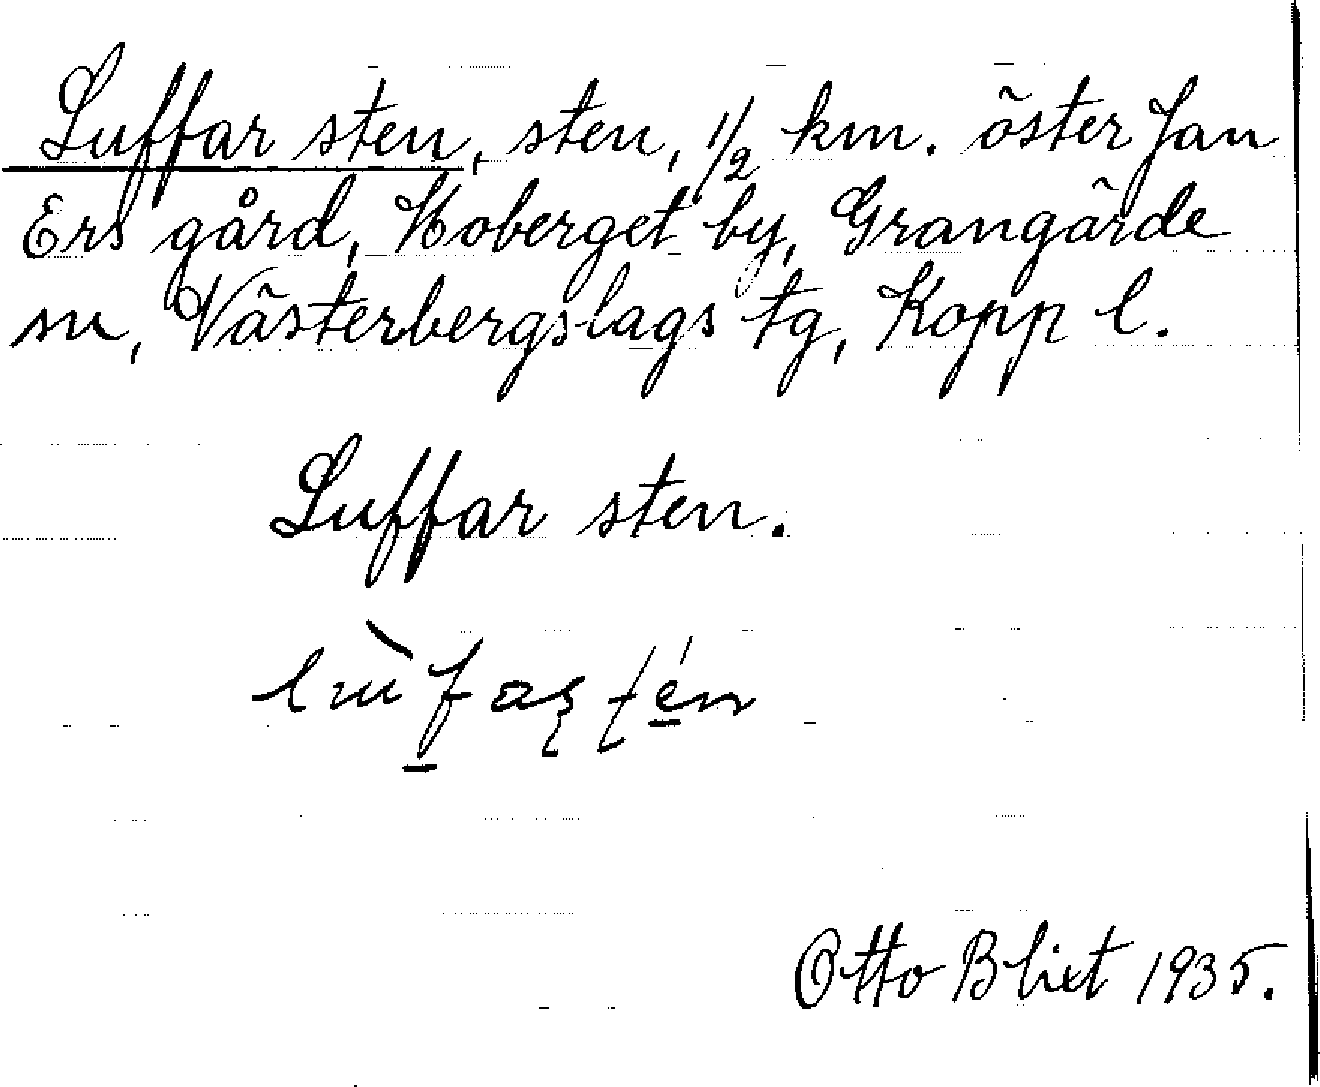 Luffar sten, sten, 1/2 km. öster Jan
Ers gård, Hoberget by, Grangärde
sn, Västerbergslags tg, Kopp l.
Luffar sten.
Otto Blixt 1935.